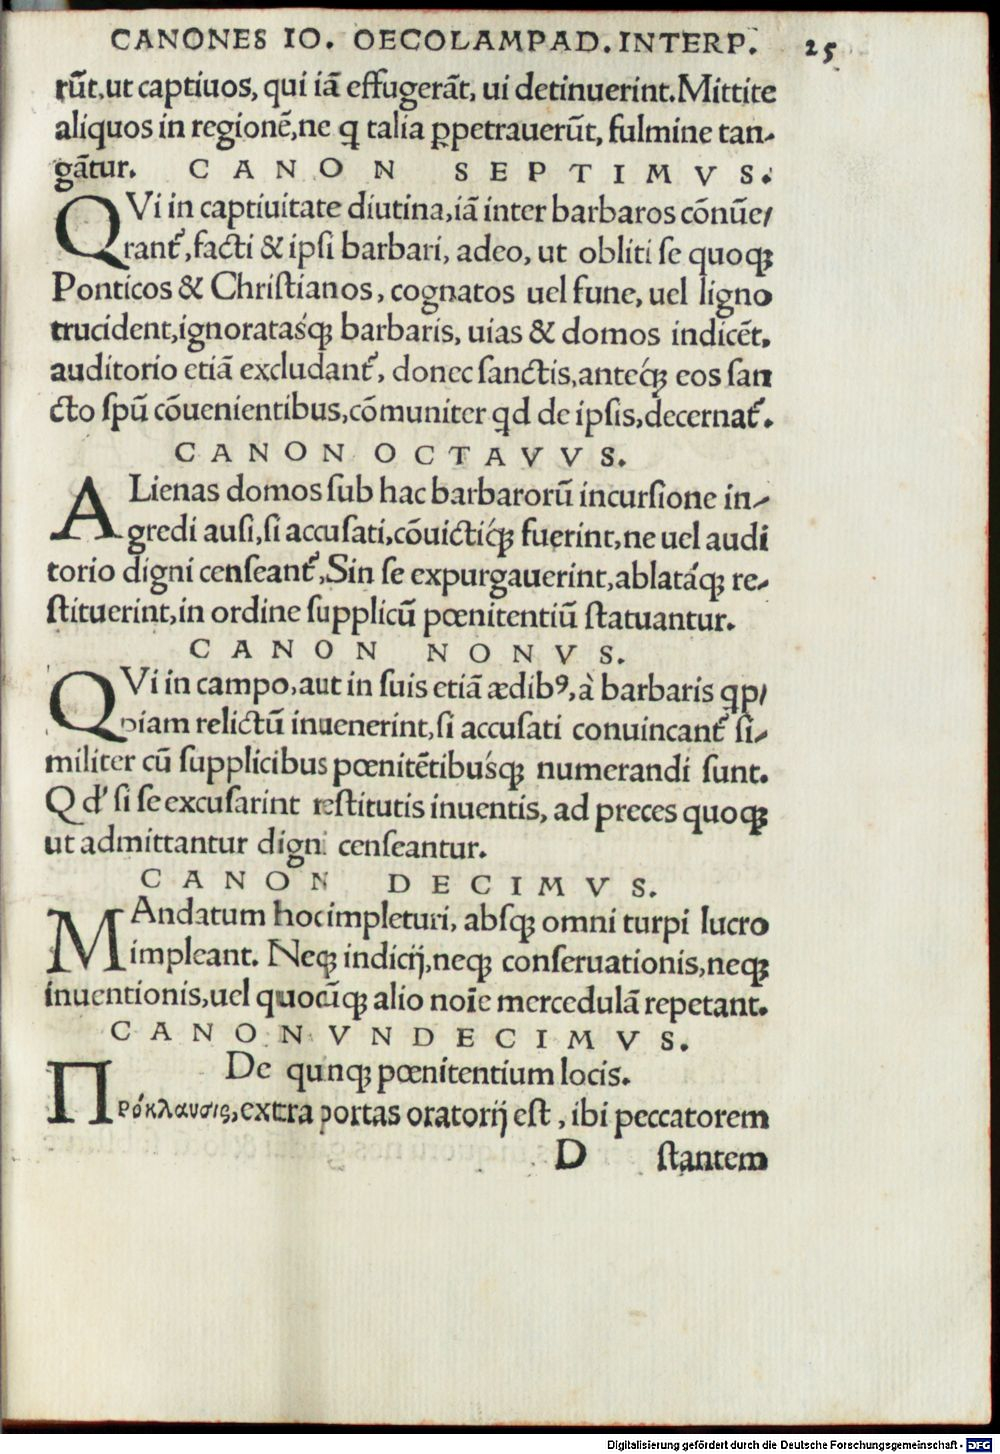 CANONES IO. OECOLAMPAD. INTERP. 25
rūt, ut captiuos, qui iā effugerāt, ui detinuerint. Mittite
aliquos in regionē, ne ꝗ talia ꝑpetrauerūt, fulmine tan-
gātur. CANON SEPTIMVS.
QVi in captiuitate diutina, iā inter barbaros cōnūe/
rant᷑, facti & ipsi barbari, adeo, ut obliti se quoqꝫ
Ponticos & Christianos, cognatos uel fune, uel ligno
trucident, ignoratasq́ꝫ barbaris, uias & domos indicēt,
auditorio etiā excludant᷑, donec sanctis, anteq́ꝫ eos san
cto spū cōuenientibus, cōmuniter qd de ipsis, decernat᷑.
CANON OCTAVVS.
ALienas domos sub hac barbarorū incursione in-
gredi ausi, si accusati, cōuictiq́ꝫ fuerint, ne uel audi
torio digni censeant᷑, Sin se expurgauerint, ablatáqꝫ re-
stituerint, in ordine supplicū pœnitentiū statuantur.
CANON NONVS.
QVi in campo, aut in suis etiā ædibꝰ, à barbaris qp/
piam relictū inuenerint, si accusati conuincant᷑ si-
militer cū supplicibus pœnitētibusq́ꝫ numerandi sunt.
Qd' si se excusarint restitutis inuentis, ad preces quoqꝫ
ut admittantur digni censeantur.
CANON DECIMVS.
MAndatum hoc impleturi, absqꝫ omni turpi lucro
impleant. Neqꝫ indicij, neqꝫ conseruationis, neqꝫ
inuentionis, uel quocūqꝫ alio noīe mercedulā repetant.
CANON VNDECIMVS.
De qunqꝫ pœnitentium locis.
ΠΡόκλαυσις, extra portas oratorij est, ibi peccatorem
D stantem
Digitalisierung gefördert durch die Deutsche Forschungsgemeinschaft - DFG